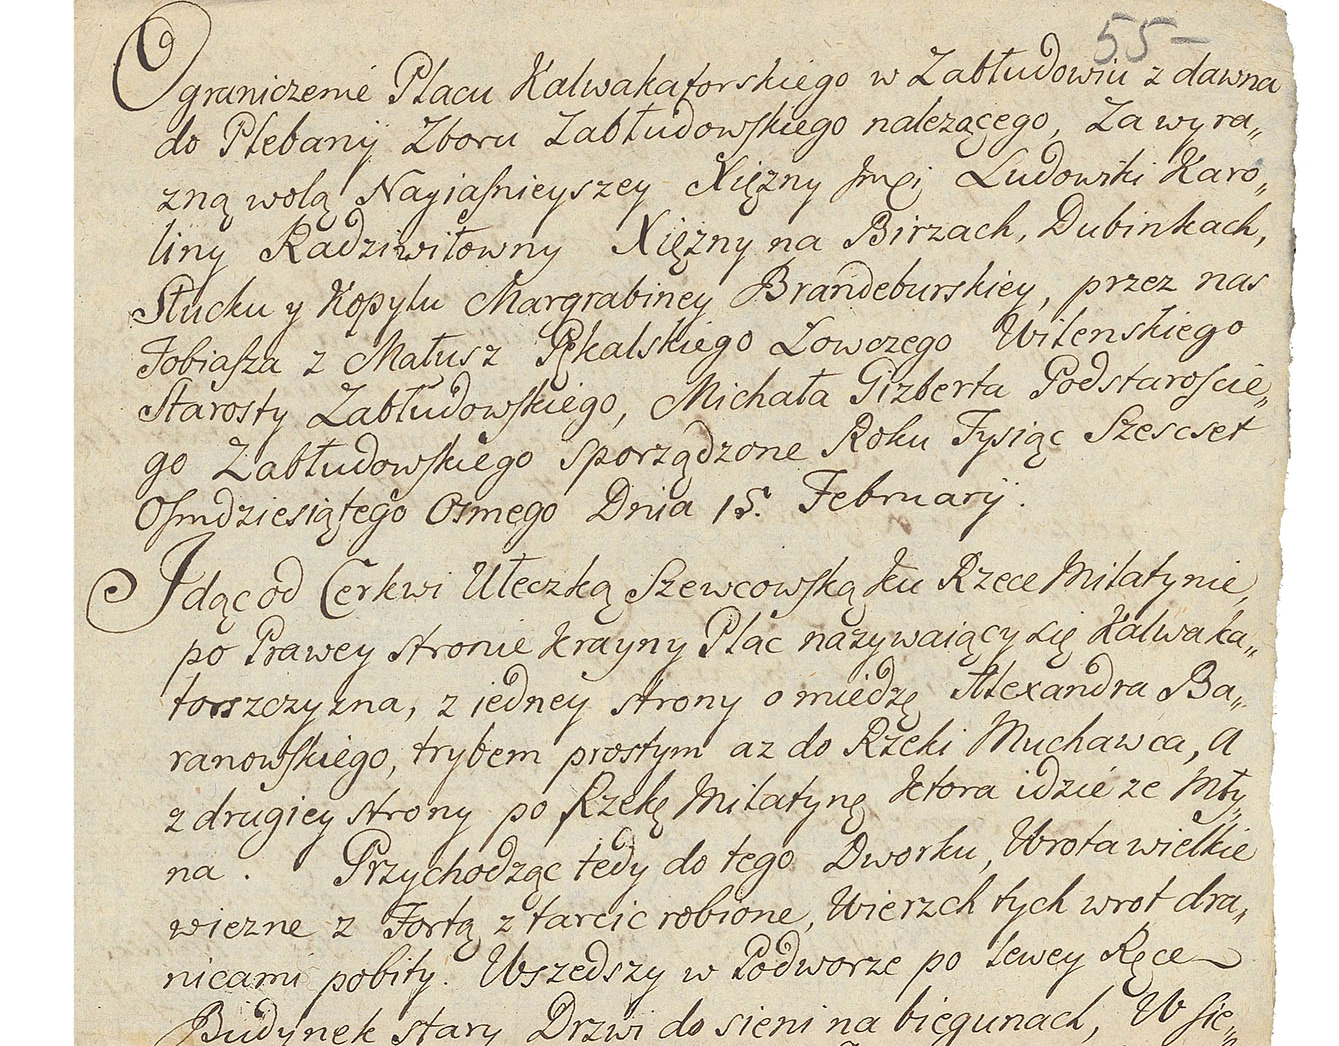 55-
Ograniczenie Placu Kalwakatorskiego w Zabłudowiu z dawna
do Plebanij Zboru Zabłudowskiego należącego, Za wyra„
zną wolą Nayiaśnieyszey Xiężny Jmci Ludowiki Karo„
liny Radziwiłowny Xiężny na Birzach, Dubinkach,
Słucku y Kopylu Margrabiney Brandeburskiey, przez nas
Tobiasza z Małusz Pękalskiego Łowczego Wilenskiego
Starosty Zabłudowskiego, Michała Gizberta Podstaroscie„
go Zabłudowskiego sporządzone Roku Tysiąc Szescset
Osmdziesiątego Osmego Dnia 15. Februarij.
Idąc od Cerkwi Uleczką Szewcowską ku Rzece Miłatynie,
po Prawey stronie krayny Plac nazywaiący się Kalwaka„
torszczyzna, z iedney strony o miedzę Alexandra Ba„
ranowskiego, trybem prostym az do Rzeki Muchawca, a
z drugiey strony po Rzekę Miłatynę ktora idzie ze Mły„
na. Przychodząc tedy do tego Dworku, Wrota wielkie
wiezne z Fortą z tarcic robione, Wierzch tych wrot dra„
nicami pobity. Wszedszy w Podworze po lewey Ręce
Budynek stary Drzwi do sieni na biegunach, W sie„